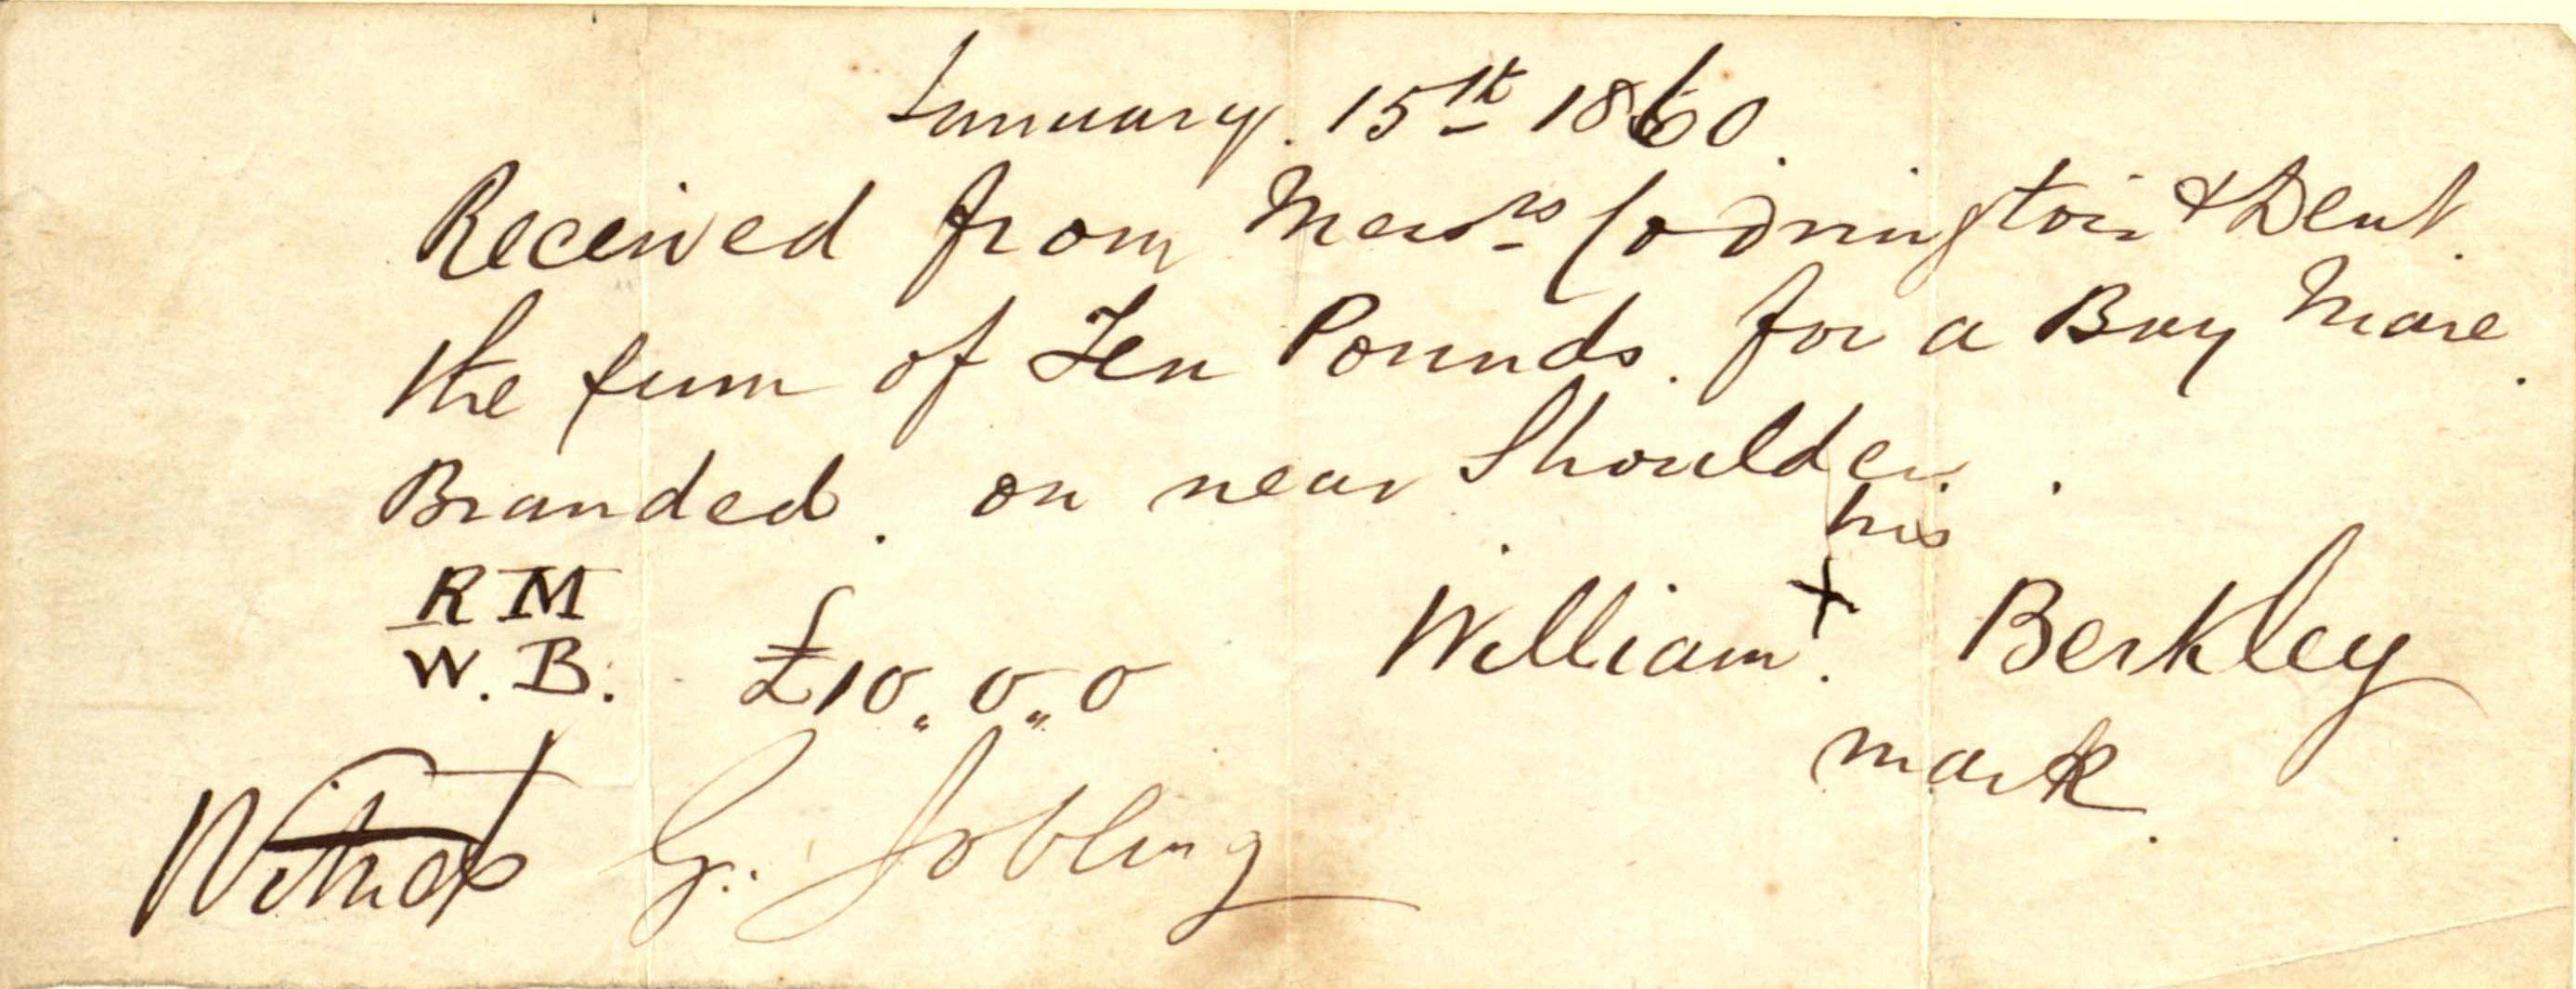 January. 15th 1860.
Received from Messrs Codrington & Dent.
the sum of Ten Pounds. for a Bay Mare.
Branded. on near Shoulder.
his
R M
William X Berkley
W. B. £10,, 0,, 0
mark.
Witness G. Jobling